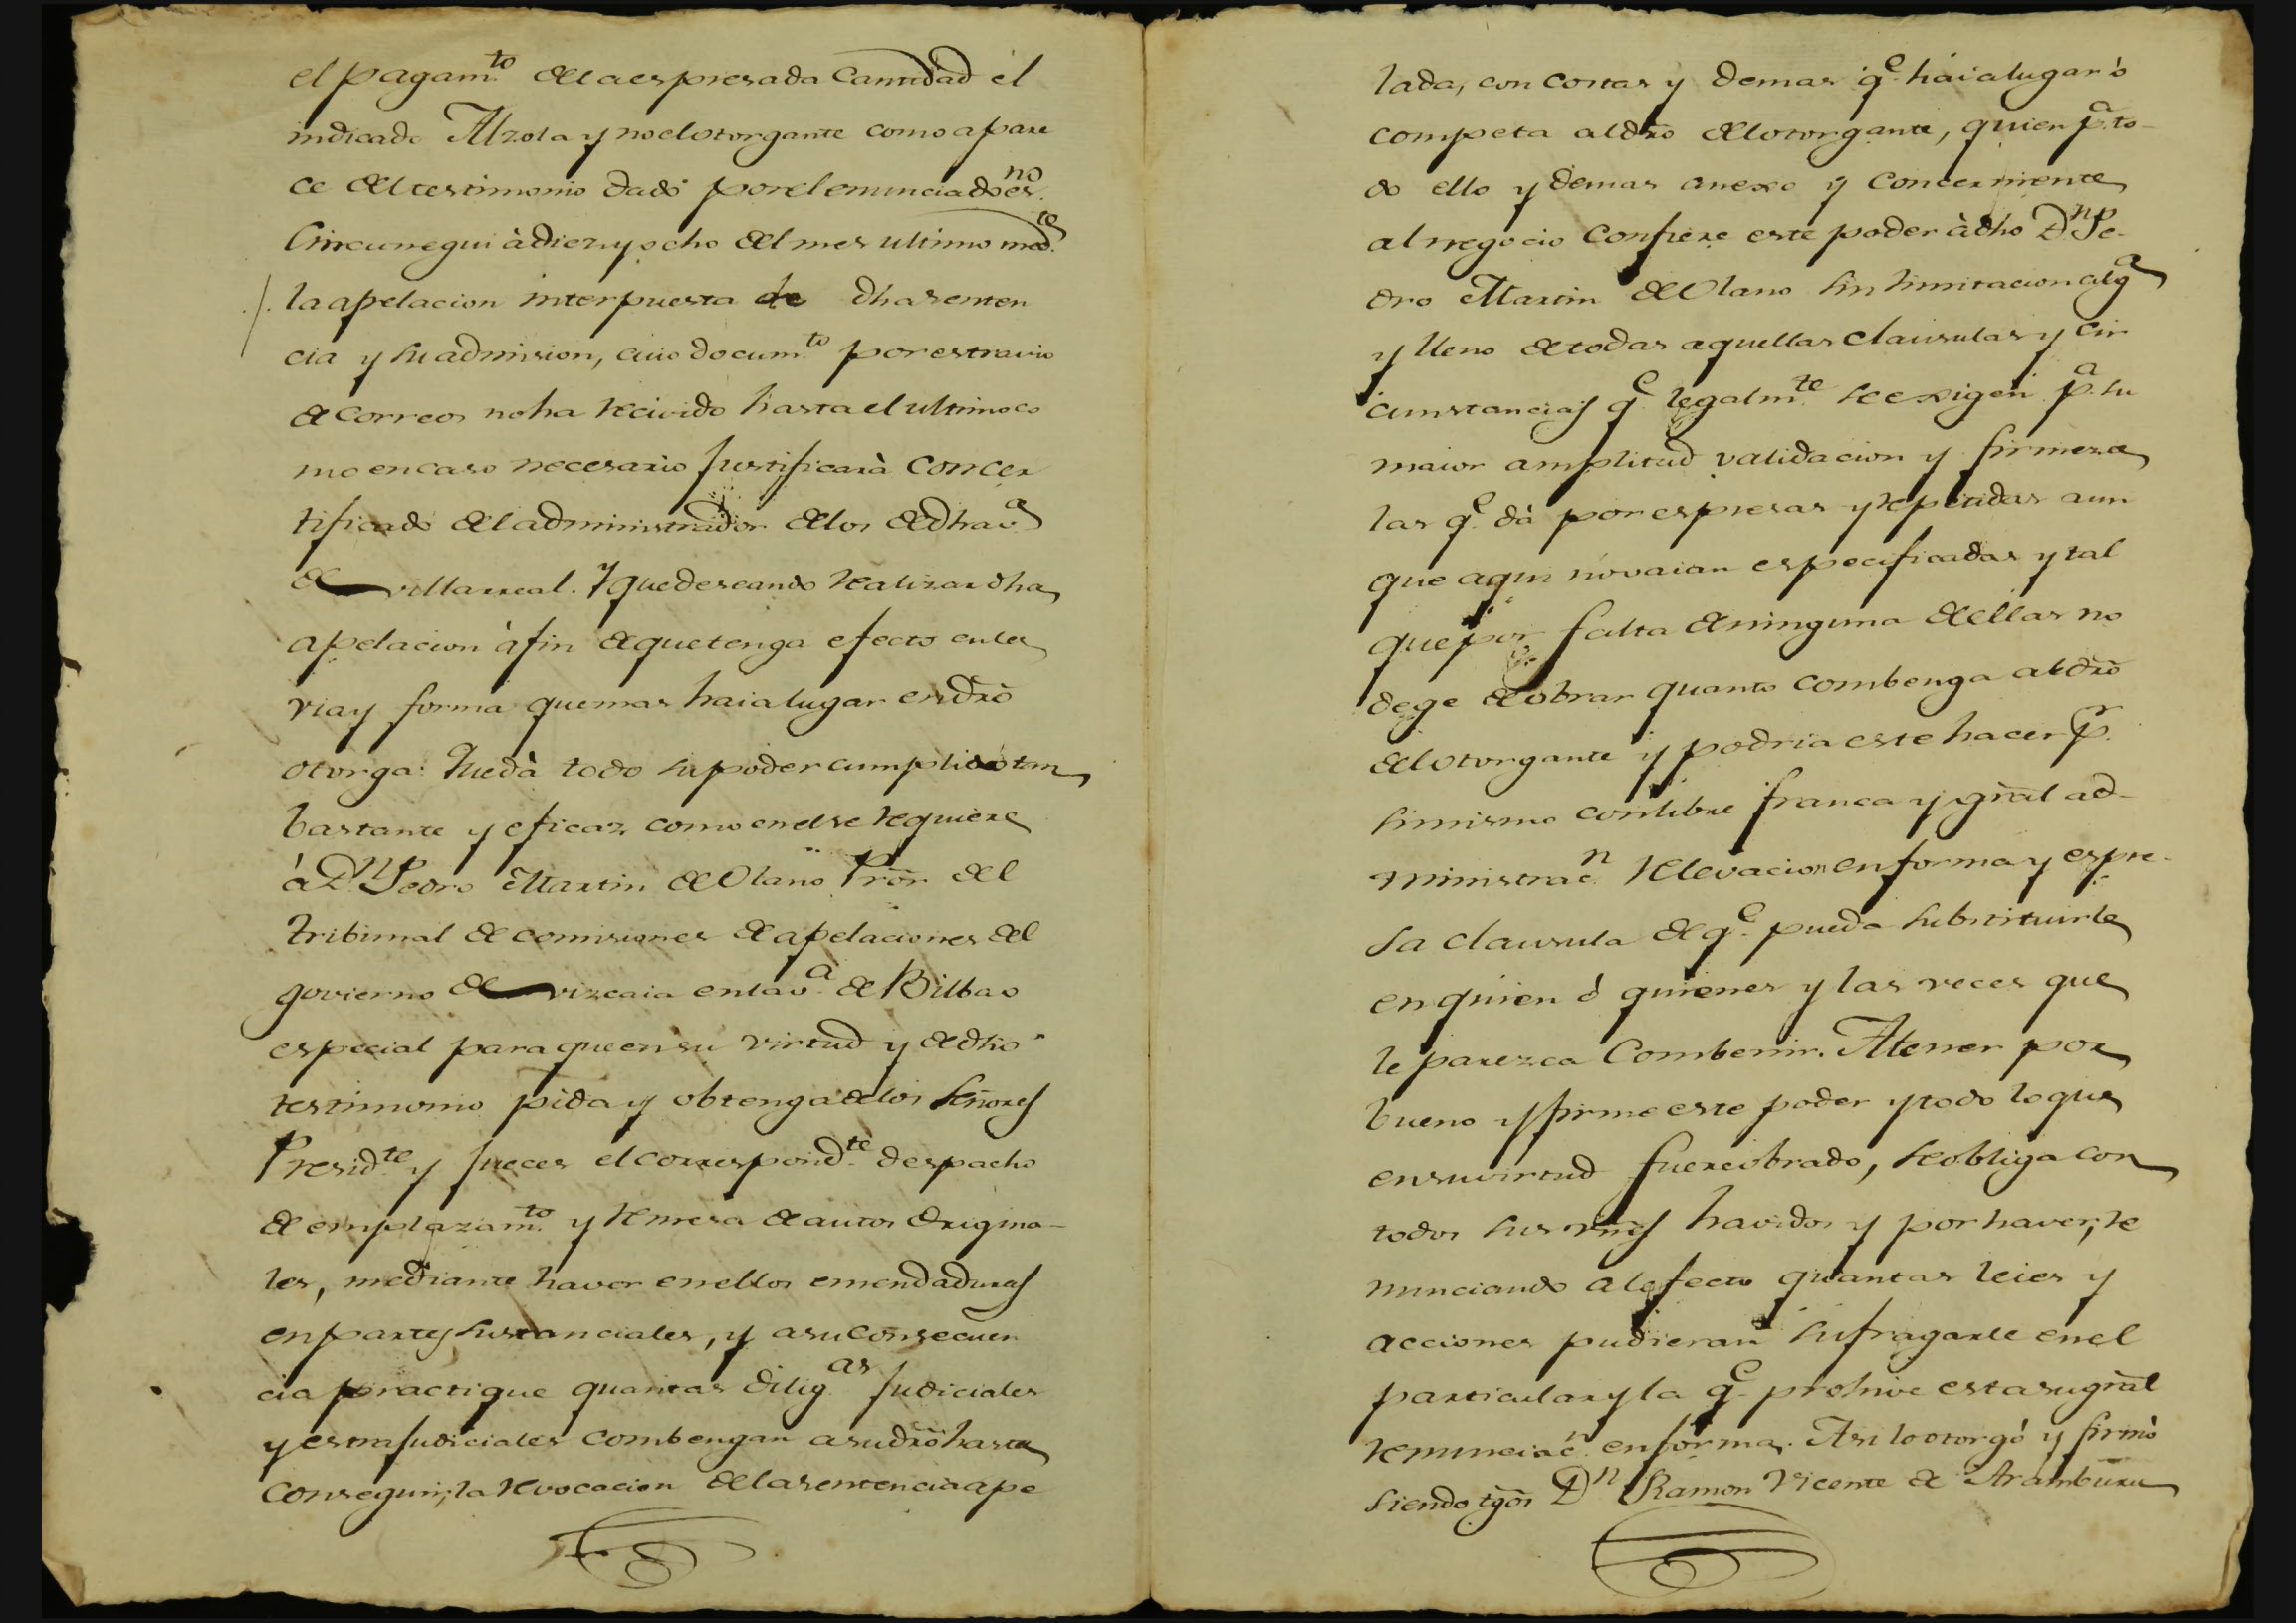 el pagam.to de la espresada Cantidad el
indicado Alzola y no el otorgante como apare
ce del testimonio dado por el enunciado es.no
Circunegui à diez y ocho del mes ultimo med.te
la apelacion interpuesta de dha senten
cia y su admision, cuio docum.to por estravio
de correos no ha recivido hasta el ultimo co
mo en caso necesario justificarà con cer
tificado del administrador de los de dha v.a
de villarreal. Y que deseando realizar dha
apelacion à fin de que tenga efecto en la
via y forma que mas haia lugar en dro
otorga: Que dà todo su poder cumplido tan
bastante y eficaz como en el se requiere
à D.n Pedro Martin de Olano Pror. del
tribunal de comisiones de apelaciones del
govierno de vizcaia en la v.a de Bilbao
especial para que en su virtud y de dho
testimonio pida y obtenga de los Señores
Presid.te y Jueces el correspond.te despacho
de emplazam.to y remesa de autos origina-
les, mediante haver en ellos emendaduras
en partes sustanciales, y a su consecuen
cia practique quantas dilig.as Judiciales
y estrajudiciales combengan a su dro hasta
conseguir, la revocacion de la sentencia ape
lada, con costas y demas q.e haia lugar ò
competa al dro del otorgante, quien p.a to-
do ello y demas anexo y concerniente
al negocio confiere este poder à dho D.n Pe-
dro Martin de Olano sin limitacion alg.a
y lleno de todas aquellas clausulas y cir
cunstancias q.e legalm.te se exigen p.a su
maior amplitud validacion y firmeza
las q.e dà por espresas y repetidas aun
que aqui no vaian especificadas y tal
que por falta de ninguna de ellas no
dege de obrar quanto combenga al dro
del otorgante y podria este hacer p.r
si mismo con libre franca y gral ad-
ministrac.n relevacion en forma y espre-
sa clausula de q.e pueda substituirle
en quien ò quienes y las veces que
le parezca Combenir. A tener por
bueno y firme este poder y todo lo que
en su virtud fuere obrado, se obliga con
todos sus vnes havidos y por haver, re
nunciando al efecto quantas leies y
acciones pudieran sufragarle en el
particular y la q.e prohive esta su gral
renunciac.n en forma. Asi lo otorgó y firmò
siendo tgos D.n Ramon Vicente de Aramburu